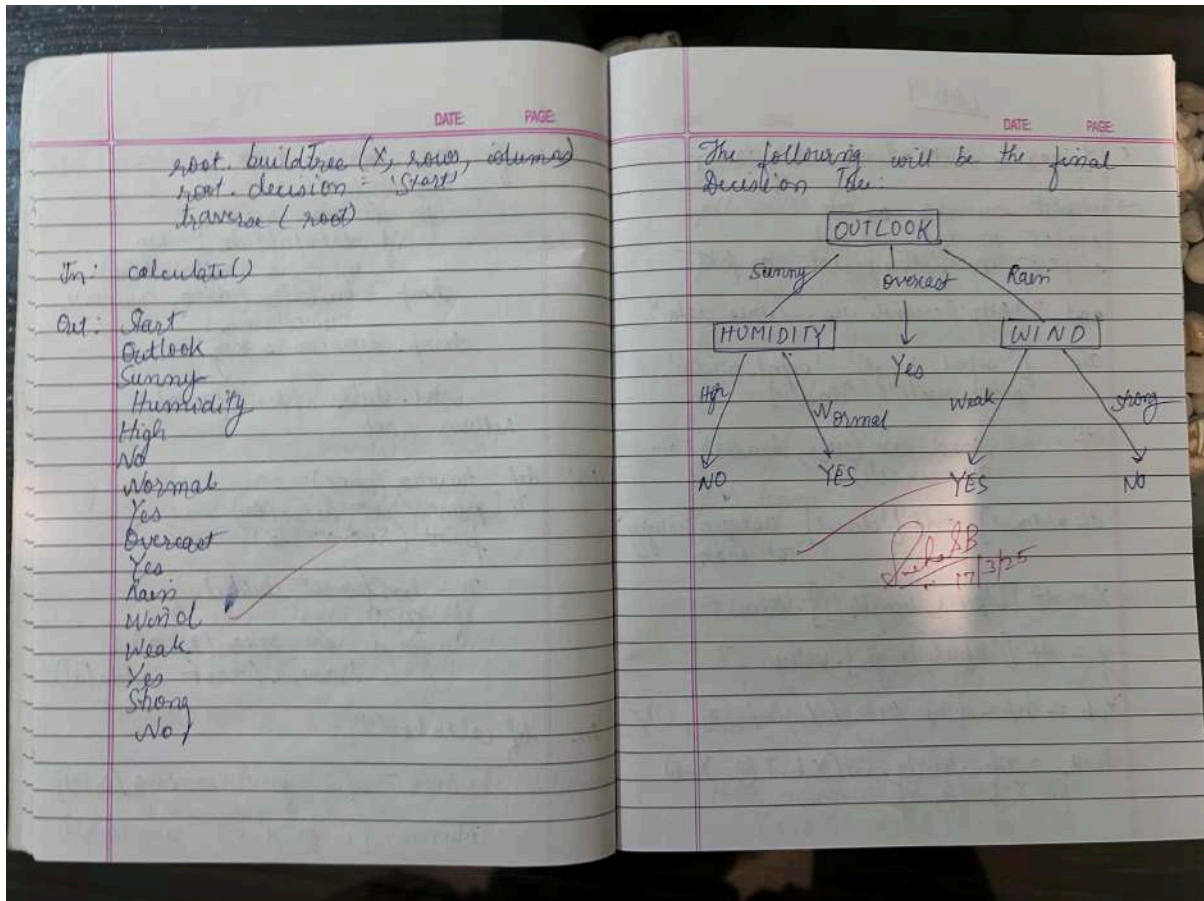 DATE: PAGE:
root. buildTree (X, rows, columns)
root. decision = 'Start'
traverse ( root)
In: calculate()
Out: Start
Outlook
Sunny
Humidity
High
No
Normal
Yes
Overcast
Yes
Rain
Wind
Weak
Yes
Strong
No
DATE: PAGE:
The following will be the final
Decision Tree:
OUTLOOK
Sunny overcast Rain
HUMIDITY WIND
Yes
High Normal Weak strong
NO YES YES NO
17/3/25